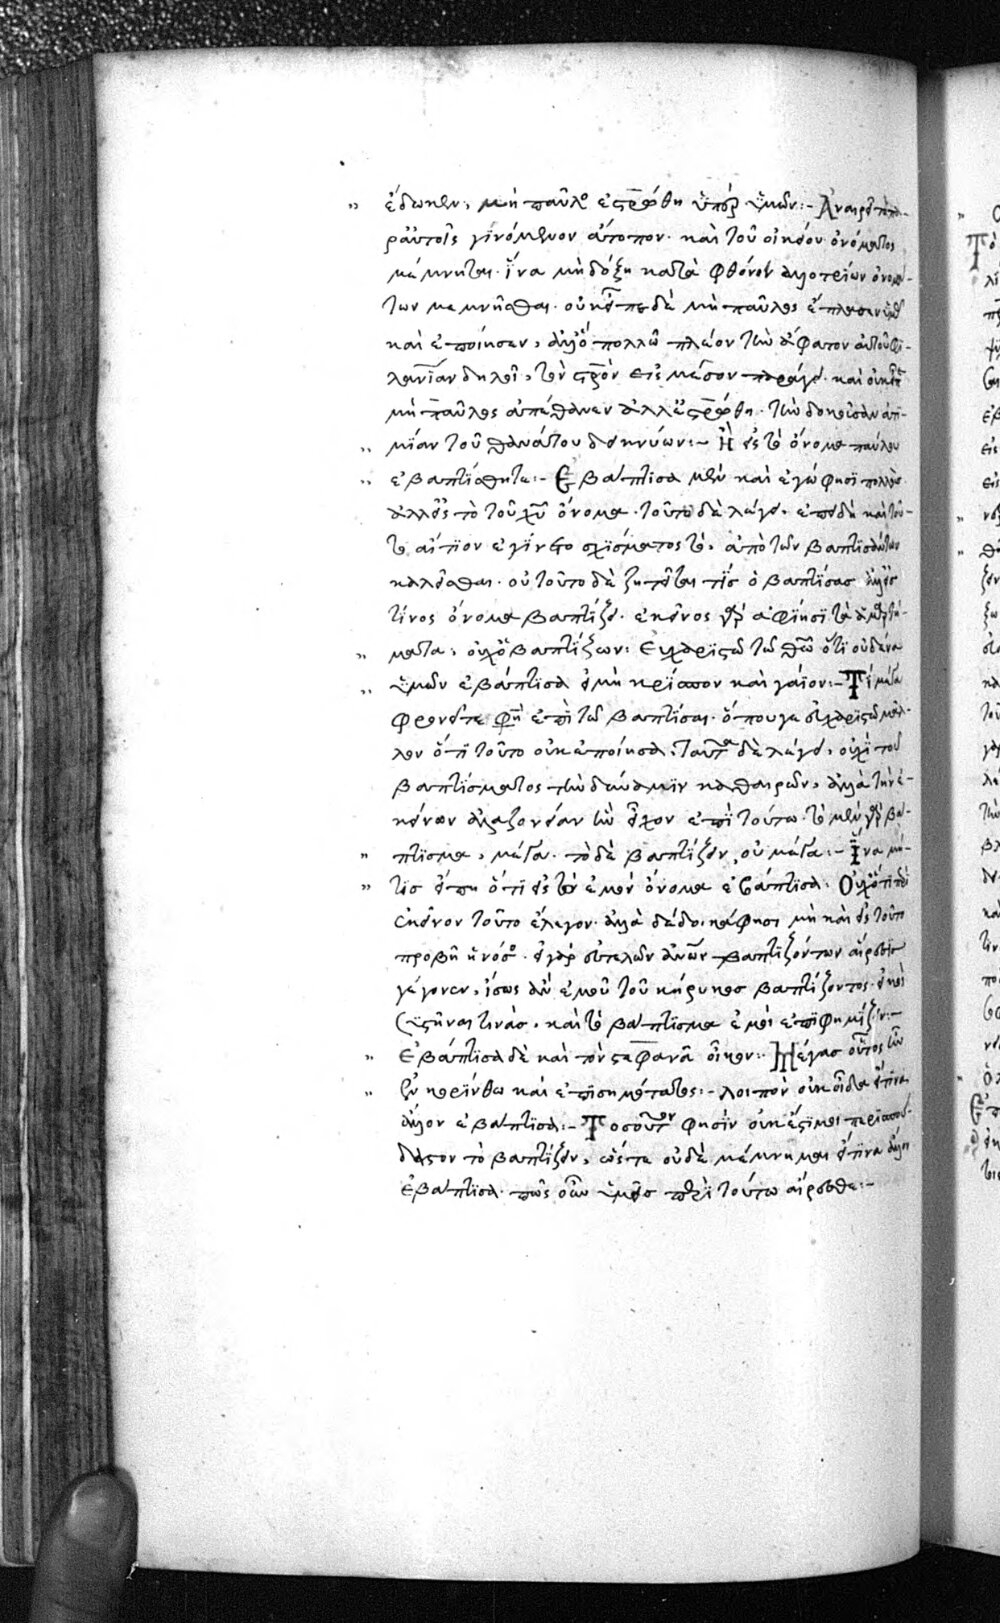 ἔδωκεν, μὴ παῦλος ἐσταυρώθη ὑπὲρ ὑμῶν:- Ἀναιρεῖ τὸ πα-
ρ' αὐτοῖς γινόμενον ἄτοπον. καὶ τοῦ οἰκείου ὀνόματος
μέμνηται. ἵνα μὴ δόξῃ κατὰ φθόνον ἀλλοτρίων ὀνομά-
των μεμνῆσθαι. οὐκ εἶπε δὲ μὴ παῦλος ἔπλασεν ὑμᾶς
καὶ ἐποίησεν, ἀλλ' ὃ πολλῶ πλέον τὴν ἄφατον αὐτοῦ φι-
λανθρωπίαν δηλοῖ, τὸν σταυρὸν εἰς μέσον παράγει. καὶ οὐκ εἶπε
μὴ παῦλος ἀπέθανεν ἀλλ' ἐσταυρώθη. τὴν δοκοῦσαν ἀτι-
μίαν τοῦ θανάτου δεικνύων:- Ἢ εἰς τὸ ὄνομα παύλου
ἐβαπτίσθητε:- Ἐβάπτισα μὲν καὶ ἐγώ φησι πολλοὺς
ἀλλ' εἰς τὸ τοῦ χυ ὄνομα. τοῦτο δὲ λέγει, ἐπειδὴ καὶ τοῦ-
το αἴτιον ἐγίνετο σχίσματος τὸ, ἀπὸ τῶν βαπτισάντων
καλεῖσθαι. οὐ τοῦτο δὲ ζητεῖται τίς ὁ βαπτίσας ἀλλ' εἰς
τίνος ὄνομα βαπτίζει. ἐκεῖνος γὰρ ἀφίησι τὰ ἁμαρτή-
ματα, οὐχ ὁ βαπτίζων: Εὐχαριστῶ τῶ θεῶ ὅτι οὐδένα
ὑμῶν ἐβάπτισα εἰ μὴ κρίσπον καὶ γάϊον:- Τί μέγα
φρονεῖτε φησὶ ἐπὶ τῶ βαπτίσαι. ὅπου γε εὐχαριστῶ μᾶλ-
λον ὅτι τοῦτο οὐκ ἐποίησα. ταῦτα δὲ λέγει, οὐχὶ τοῦ
βαπτίσματος τὴν δύναμιν καθαιρῶν, ἀλλὰ τὴν ἐ-
κείνων ἀλαζονείαν ἣν εἶχον ἐπὶ τούτω. τὸ μὲν γὰρ βά-
πτισμα, μέγα. τὸ δὲ βαπτίζειν, οὐ μέγα:- Ἵνα μή
τις εἴπῃ ὅτι εἰς τὸ ἐμὸν ὄνομα ἐβάπτισα. Οὐχ ὅτι περὶ
ἐκείνων τοῦτο ἔλεγον. ἀλλὰ δέδοικά φησι μὴ καὶ εἰς τοῦτο
προβῇ ἡ νόσος. εἰ γὰρ εὐτελῶν ἀνθρώπων βαπτιζόντων αἵρεσις
γέγονεν, ἴσως ἂν ἐμοῦ τοῦ κήρυκος βαπτίζοντος. εἰκὸς
συστῆναι τινὰς, καὶ τὸ βάπτισμα ἐμοὶ ἐπιφημίζειν:-
Ἐβάπτισα δὲ καὶ τὸν στεφανᾶ οἶκον:- Μέγας οὗτος ἦν
ἐν κορίνθω καὶ ἐπισημότατος:- λοιπὸν οὐκ οἶδα εἴ τινα
ἄλλον ἐβάπτισα:- Τοσοῦτον φησὶν οὐκ ἔστι μοι περισπού-
δαστον τὸ βαπτίζειν, ὥστε οὐδὲ μέμνημαι εἴ τινα ἄλλον
ἐβάπτισα. πῶς οὖν ὑμεῖς περὶ τούτω αἴρεσθε:-